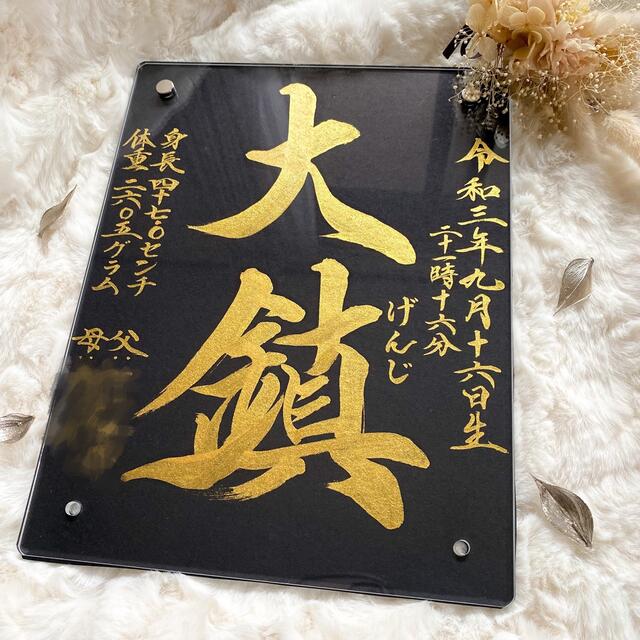 令和三年九月十六日生
二十一時十六分
大鎮
げんじ
身長 四十七.〇センチ
体重 二六〇五グラム
父
母